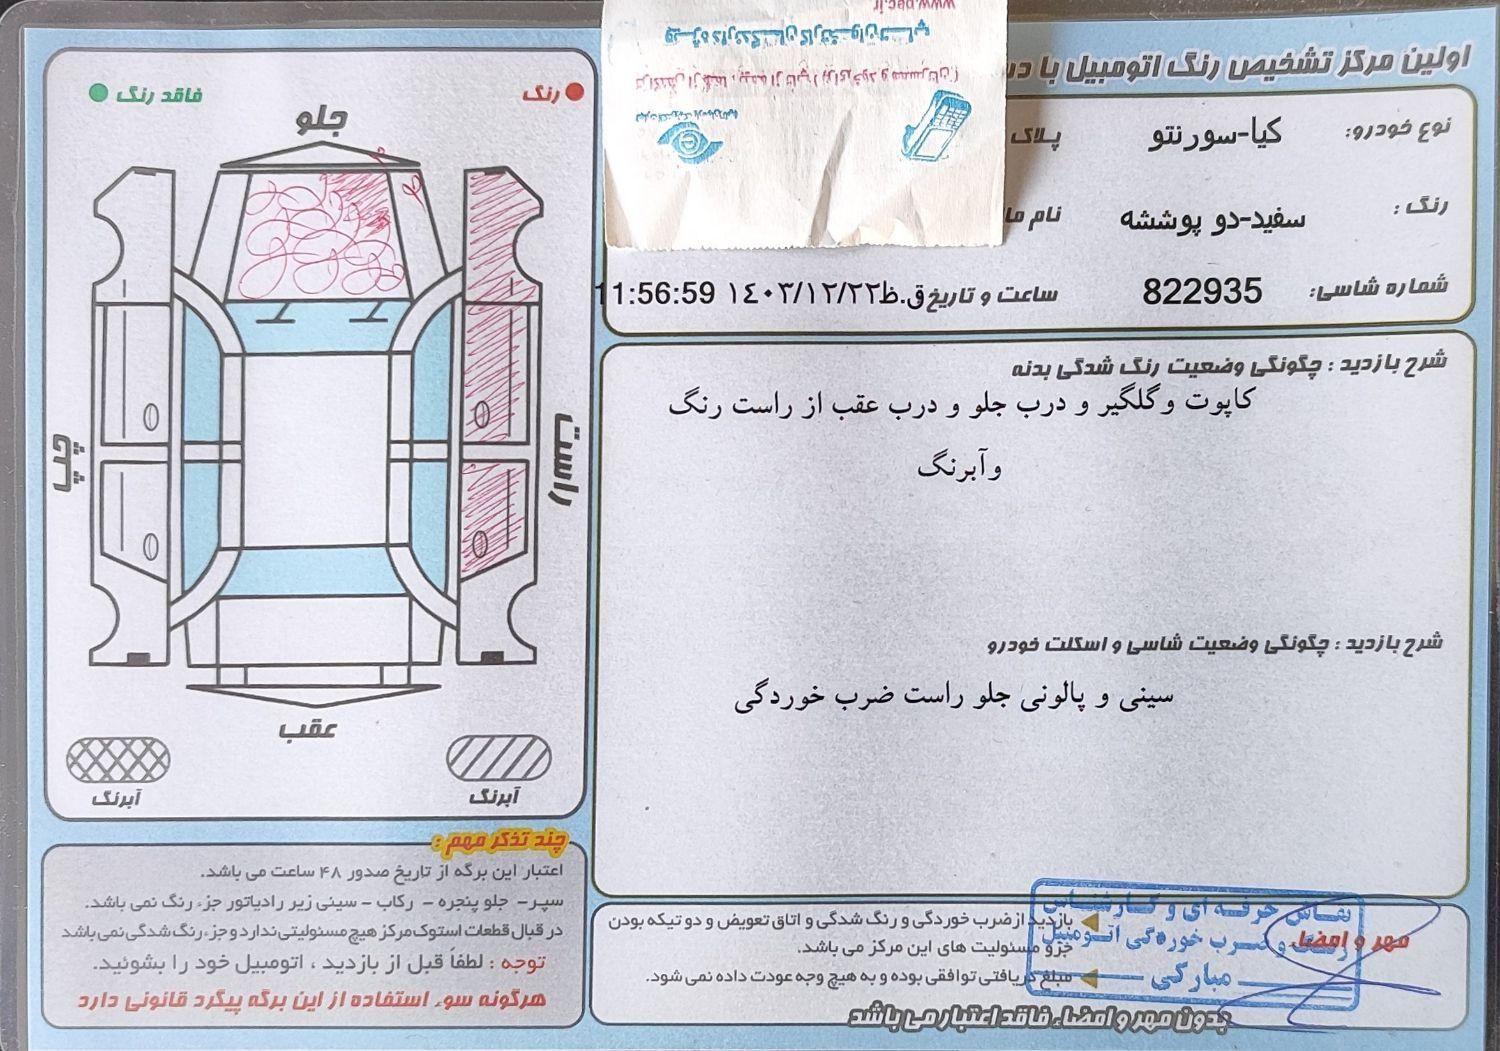 اولین مرکز تشخیص رنگ اتومبیل با
نوع خودرو: کیا-سورنتو
پلاک
رنگ : سفید-دو پوششه
نام
شماره شاسی: 822935
ساعت و تاریخ ق.ظ ١٤٠٣/١٢/٢٢ 11:56:59
شرح بازدید : چگونگی وضعیت رنگ شدگی بدنه
کاپوت و گلگیر و درب جلو و درب عقب از راست رنگ
و آبرنگ
شرح بازدید : چگونگی وضعیت شاسی و اسکلت خودرو
سینی و پالونی جلو راست ضرب خوردگی
بازدید از ضرب خوردگی و رنگ شدگی و اتاق تعویض و دو تیکه بودن
جزو مسئولیت های این مرکز می باشد.
مبلغ دریافتی توافقی بوده و به هیچ وجه عودت داده نمی شود.
مهر و امضاء
نقاش حرفه ای و کارشناس
رنگ و ضرب خوردگی اتومبیل
مبارکی
بدون مهر و امضاء فاقد اعتبار می باشد
رنگ
فاقد رنگ
جلو
راست
چپ
عقب
آبرنگ
آبرنگ
چند تذکر مهم :
اعتبار این برگه از تاریخ صدور ۴۸ ساعت می باشد.
سپر - جلو پنجره - رکاب - سینی زیر رادیاتور جزء رنگ نمی باشد.
در قبال قطعات استوک مرکز هیچ مسئولیتی ندارد و جزء رنگ شدگی نمی باشد
توجه : لطفاً قبل از بازدید ، اتومبیل خود را بشوئید.
هرگونه سوء استفاده از این برگه پیگرد قانونی دارد
www.pec.ir